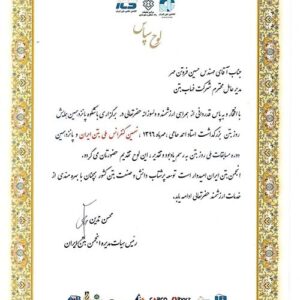 لوح سپاس
جناب آقای مهندس حسین فروتن مهر
مدیر عامل محترم شرکت خاب بتن
با افتخار و به پاس قدردانی از همراهی ارزشمند و دلسوزانه حضرتعالی در برگزاری باشکوه پانزدهمین همایش
روز بتن بزرگداشت استاد احمد حامی ، مهرماه ۱۳۹۶، نهمین کنفرانس ملی بتن ایران و پانزدهمین
دوره مسابقات ملی روز بتن به رسم یادبود و تقدیر ، این لوح تقدیم حضورتان می گردد.
انجمن بتن ایران امیدوار است توسعه پرشتاب دانش و صنعت بتن کشور همچنان با بهره مندی از
خدمات ارزشمند حضرتعالی ادامه یابد.
محسن تدین
رئیس هیات مدیره انجمن بتن ایران